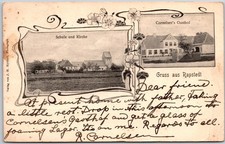 Schule und Kirche
Cornelsen's Gasthof
Gruss aus Rapstedt
Dear friend,
At present home with father, taking
a little rest. Drop in this afternoon to
Cornelsens Gasthof and get a glass of
foaming Lager. Its on me. Regards to all.
R. Cornelsen